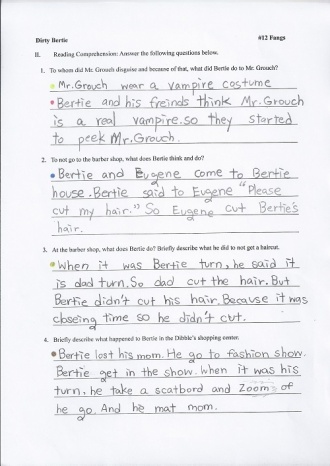 Dirty Bertie #12 Fangs
II. Reading Comprehension: Answer the following questions below.
1. To whom did Mr. Grouch disguise and because of that, what did Bertie do to Mr. Grouch?
Mr. Grouch wear a vampire costume
Bertie and his freinds think Mr. Grouch
is a real vampire. so they started
to peek Mr. Grouch.
2. To not go to the barber shop, what does Bertie think and do?
Bertie and Eugene come to Bertie
house. Bertie said to Eugene "Please
cut my hair." So Eugene cut Bertie's
hair.
3. At the barber shop, what does Bertie do? Briefly describe what he did to not get a haircut.
When it was Bertie turn, he said it
is dad turn. So dad cut the hair. But
Bertie didn't cut his hair. Because it was
closeing time so he didn't cut.
4. Briefly describe what happened to Bertie in the Dibble's shopping center.
Bertie lost his mom. He go to fashion show.
Bertie get in the show. When it was his
turn, he take a scatbord and Zoom of
he go. And he mat mom.